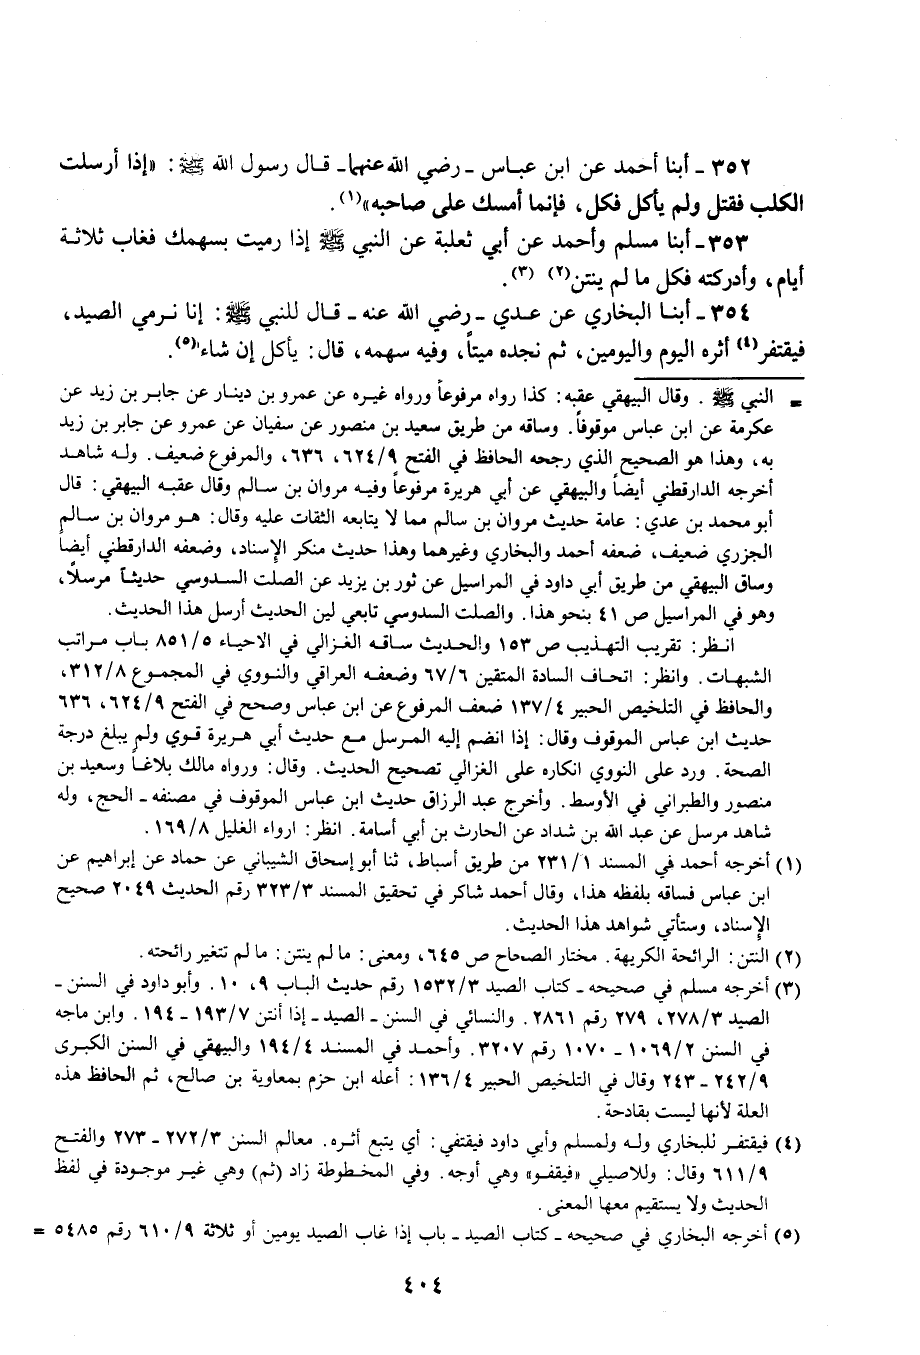 ٣٥٢ ـ أبنا أحمد عن ابن عباس ـ رضي الله عنهما ـ قال رسول الله ﷺ: «إذا أرسلت
الكلب فقتل ولم يأكل فكل، فإنما أمسك على صاحبه»(١).
٣٥٣ ـ أبنا مسلم وأحمد عن أبي ثعلبة عن النبي ﷺ إذا رميت بسهمك فغاب ثلاثة
أيام، وأدركته فكل ما لم ينتن(٢) (٣).
٣٥٤ ـ أبنا البخاري عن عدي ـ رضي الله عنه ـ قال للنبي ﷺ: إنا نرمي الصيد،
فيقتفر(٤) أثره اليوم واليومين، ثم نجده ميتاً، وفيه سهمه، قال: يأكل إن شاء(٥).
= النبي ﷺ. وقال البيهقي عقبه: كذا رواه مرفوعاً ورواه غيره عن عمرو بن دينار عن جابر بن زيد عن
عكرمة عن ابن عباس موقوفاً. وساقه من طريق سعيد بن منصور عن سفيان عن عمرو عن جابر بن زيد
به، وهذا هو الصحيح الذي رجحه الحافظ في الفتح ٦٢٤/٩، ٦٣٦، والمرفوع ضعيف. وله شاهد
أخرجه الدارقطني أيضاً والبيهقي عن أبي هريرة مرفوعاً وفيه مروان بن سالم وقال عقبه البيهقي: قال
أبو محمد بن عدي: عامة حديث مروان بن سالم مما لا يتابعه الثقات عليه وقال: هو مروان بن سالم
الجزري ضعيف، ضعفه أحمد والبخاري وغيرهما وهذا حديث منكر الإسناد، وضعفه الدارقطني أيضاً
وساق البيهقي من طريق أبي داود في المراسيل عن ثور بن يزيد عن الصلت السدوسي حديثاً مرسلاً،
وهو في المراسيل ص ٤١ بنحو هذا. والصلت السدوسي تابعي لين الحديث أرسل هذا الحديث.
انظر: تقريب التهذيب ص ١٥٣ والحديث ساقه الغزالي في الاحياء ٨٥١/٥ باب مراتب
الشبهات. وانظر: اتحاف السادة المتقين ٦٧/٦ وضعفه العراقي والنووي في المجموع ٣١٢/٨،
والحافظ في التلخيص الحبير ١٣٧/٤ ضعف المرفوع عن ابن عباس وصحح في الفتح ٦٢٤/٩، ٦٣٦
حديث ابن عباس الموقوف وقال: إذا انضم إليه المرسل مع حديث أبي هريرة قوي ولم يبلغ درجة
الصحة. ورد على النووي انكاره على الغزالي تصحيح الحديث. وقال: ورواه مالك بلاغاً وسعيد بن
منصور والطبراني في الأوسط. وأخرج عبد الرزاق حديث ابن عباس الموقوف في مصنفه ـ الحج، وله
شاهد مرسل عن عبد الله بن شداد عن الحارث بن أبي أسامة. انظر: ارواء الغليل ١٦٩/٨.
(١) أخرجه أحمد في المسند ٢٣١/١ من طريق أسباط، ثنا أبو إسحاق الشيباني عن حماد عن إبراهيم عن
ابن عباس فساقه بلفظه هذا، وقال أحمد شاكر في تحقيق المسند ٣٢٣/٣ رقم الحديث ٢٠٤٩ صحيح
الإسناد، وستأتي شواهد هذا الحديث.
(٢) النتن: الرائحة الكريهة. مختار الصحاح ص ٦٤٥، ومعنى: ما لم ينتن: ما لم تتغير رائحته.
(٣) أخرجه مسلم في صحيحه ـ كتاب الصيد ١٥٣٢/٣ رقم حديث الباب ٩، ١٠. وأبو داود في السنن ـ
الصيد ٢٧٨/٣، ٢٧٩ رقم ٢٨٦١. والنسائي في السنن ـ الصيد ـ إذا أنتن ١٩٣/٧ ـ ١٩٤. وابن ماجه
في السنن ١٠٦٩/٢ ـ ١٠٧٠ رقم ٣٢٠٧. وأحمد في المسند ١٩٤/٤ والبيهقي في السنن الكبرى
٢٤٢/٩ ـ ٢٤٣ وقال في التلخيص الحبير ١٣٦/٤: أعله ابن حزم بمعاوية بن صالح، ثم الحافظ هذه
العلة لأنها ليست بقادحة.
(٤) فيقتفر للبخاري وله ولمسلم وأبي داود فيقتفي: أي يتبع أثره. معالم السنن ٢٧٢/٣ ـ ٢٧٣ والفتح
٦١١/٩ وقال: وللاصيلي «فيقفو» وهي أوجه. وفي المخطوطة زاد (ثم) وهي غير موجودة في لفظ
الحديث ولا يستقيم معها المعنى.
(٥) أخرجه البخاري في صحيحه ـ كتاب الصيد ـ باب إذا غاب الصيد يومين أو ثلاثة ٦١٠/٩ رقم ٥٤٨٥ =
٤٠٤